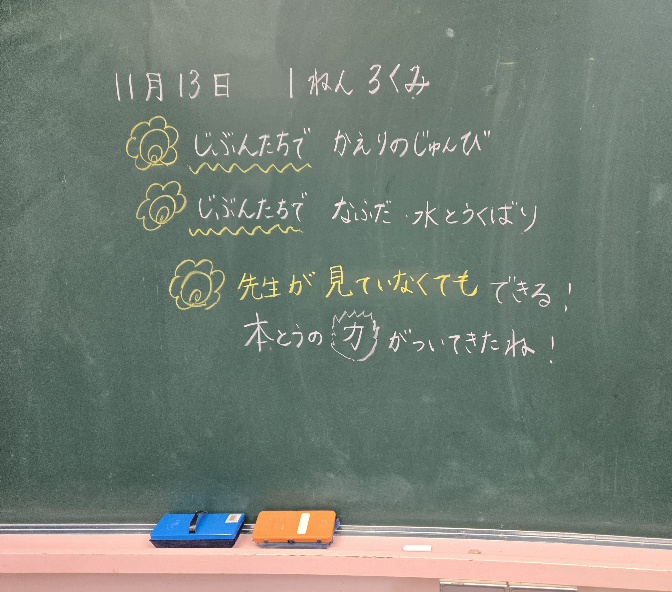 11月13日 1ねん3くみ
じぶんたちで かえりのじゅんび
じぶんたちで なふだ・水とうくばり
先生が見ていなくてもできる!
本とうの力がついてきたね!